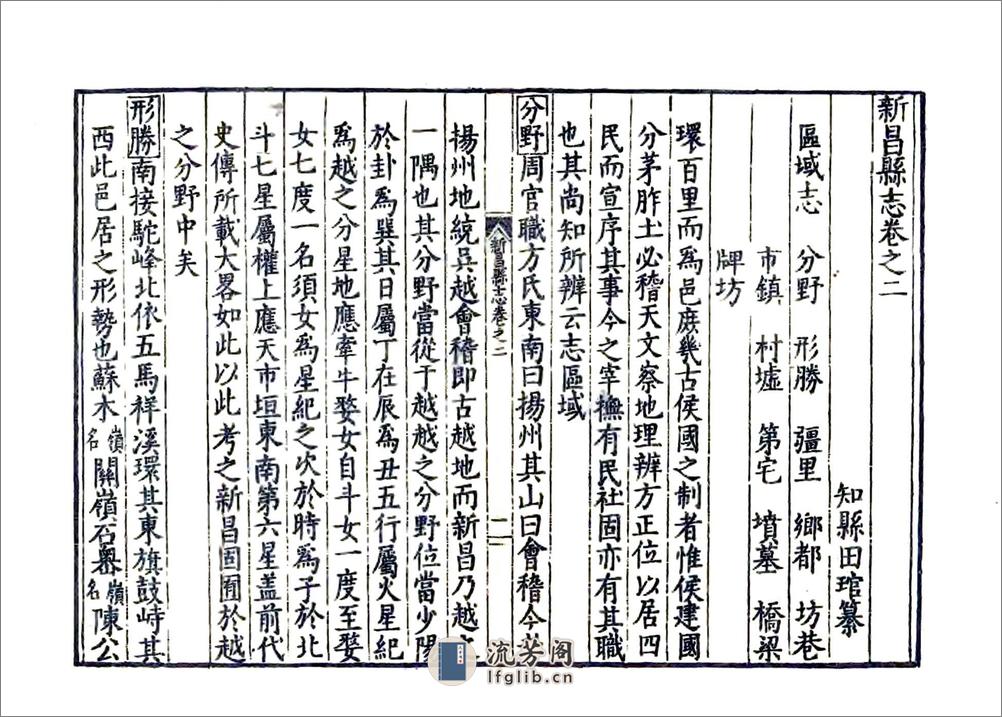 新昌縣志卷之二
知縣田琯纂
區域志 分野 形勝 疆里 鄉都 坊巷
市鎮 村墟 第宅 墳墓 橋梁
牌坊
環百里而爲邑庶幾古侯國之制者惟侯建國
分茅胙土必稽天文察地理辨方正位以居四
民而宣序其事今之宰橅有民社固亦有其職
也其尚知所辨云志區域
分野周官職方氏東南曰揚州其山曰會稽今
新昌縣志卷之二
二一
揚州地統吳越會稽即古越地而新昌乃越之
一隅也其分野當從于越越之分野位當少陽
於卦爲巽其日屬丁在辰爲丑五行屬火星紀
爲越之分星地應牽牛婺女自斗女一度至婺
女七度一名須女爲星紀之次於時爲子於北
斗七星屬權上應天市垣東南第六星盖前代
史傳所載大畧如此以此考之新昌固囿於越
之分野中矣
形勝南接駝峰北依五馬祥溪環其東旗鼓峙其
西此邑居之形勢也蘇木嶺名關嶺石嶺名陳公
流芳阁
lfglib.cn